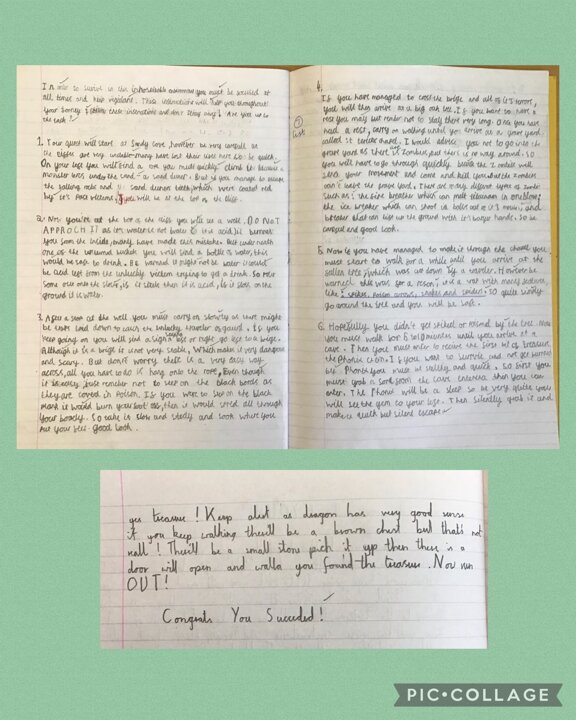 In order to survive in the inhospitable environment you must be careful at
all times and keep vigilant. These instructions will help you throughout
your journey follow these instructions and don't stray away! Are you up to
the task!
1. Your quest will start at Sandy Cove, however be very careful as
the cliffs are very many have lost their lives here so be quick.
On your left you will find a you must quickly climb it because a
monster lives under the sand – a sand diener. But if you manage to escape
the falling rocks and sand diener teeth, which were coated red
by it's past victims, you will be at the top of the cliff.
2. Now you're at the top of the cliffs you will see a well. DO NOT
APPROACH IT as it's water is not water it is acid, it burns
you from the inside, many have made this mistake. But underneath
one of the upturned bucket you will find a bottle of water, this
would be safe to drink. Be warned it might not be water it could
be acid left from the unlucky victim trying to get a drink. So pour
some out onto the floor, if it steams then it is acid, if it stays on the
ground it is water.
3. After a rest at the well you must carry on slowly as there might
be traps laid down to catch the unlucky traveler off guard. If you
keep going on you will find a sign left or right go left to a bridge.
Although it is a bridge it is not very stable, which makes it very dangerous
and scary. But don't worry there is a very easy way
across, all you have to do is hang onto the rope, Even though
it is easy just remember not to step on the black boards as
they are coverd in poison. If you were to step on the black
mark it would burn your foot off, then it would spred all through
your body. So take it slow and steady and look where you
put your feet. Good look.
4.
If you have managed to cross the bridge and all of it's terrors,
you will then arrive at a big oak tree. If you want to have a
rest you may but remember not to stay there very long. Once you have
had a rest, carry on walking until you arrive at a grave yard
called I would advise you not to go into the
grave yard as there is Zombies but there is no way around. So
you will have to go through quickly because the Zombies will
sense your movement and come and kill you. The Zombies
can't leave the grave yard. There are many different types of Zombie
such as: the fire breather which can melt
the ice breaker which can shoot ice bolts out of it's mouth, and
breaker that can lift up the ground with it's large hands. So be
careful and good look.
5. Now if you have managed to make it through the grave yard
must start to walk for a while until you arrive at the
fallen tree, which was cut down by a traveler. However be
warned this was for a reason, it is a trap with many features,
like spikes, poison arrows, snakes and spiders. So quite simply
go around the tree and you will be safe.
6. Hopefully you didn't get spiked or poisond by the tree. Now
you must walk for 5 to 10 minutes until you arrive at a
cave. Then you must enter to receive the piece of treasure,
the Phoenix crown. If you want to survive and not get burned
by Phoenix you must be stealthy and quick. So first you
must grab a from the cave entrance then you can
enter. The Phoenix will be a sleep so be very quiet. You
will see the gem to your left. Then silently grab it and
make a quick but silent escape.
yes treasure! Keep alert as dragon has very good sense
if you keep walking there'll be a brown chest but that's not
reall! There'll be a small stone pick it up then there is a
door will open and walla you found the treasure. Now run
OUT!
Congrats You Succeded!
PIC•COLLAGE